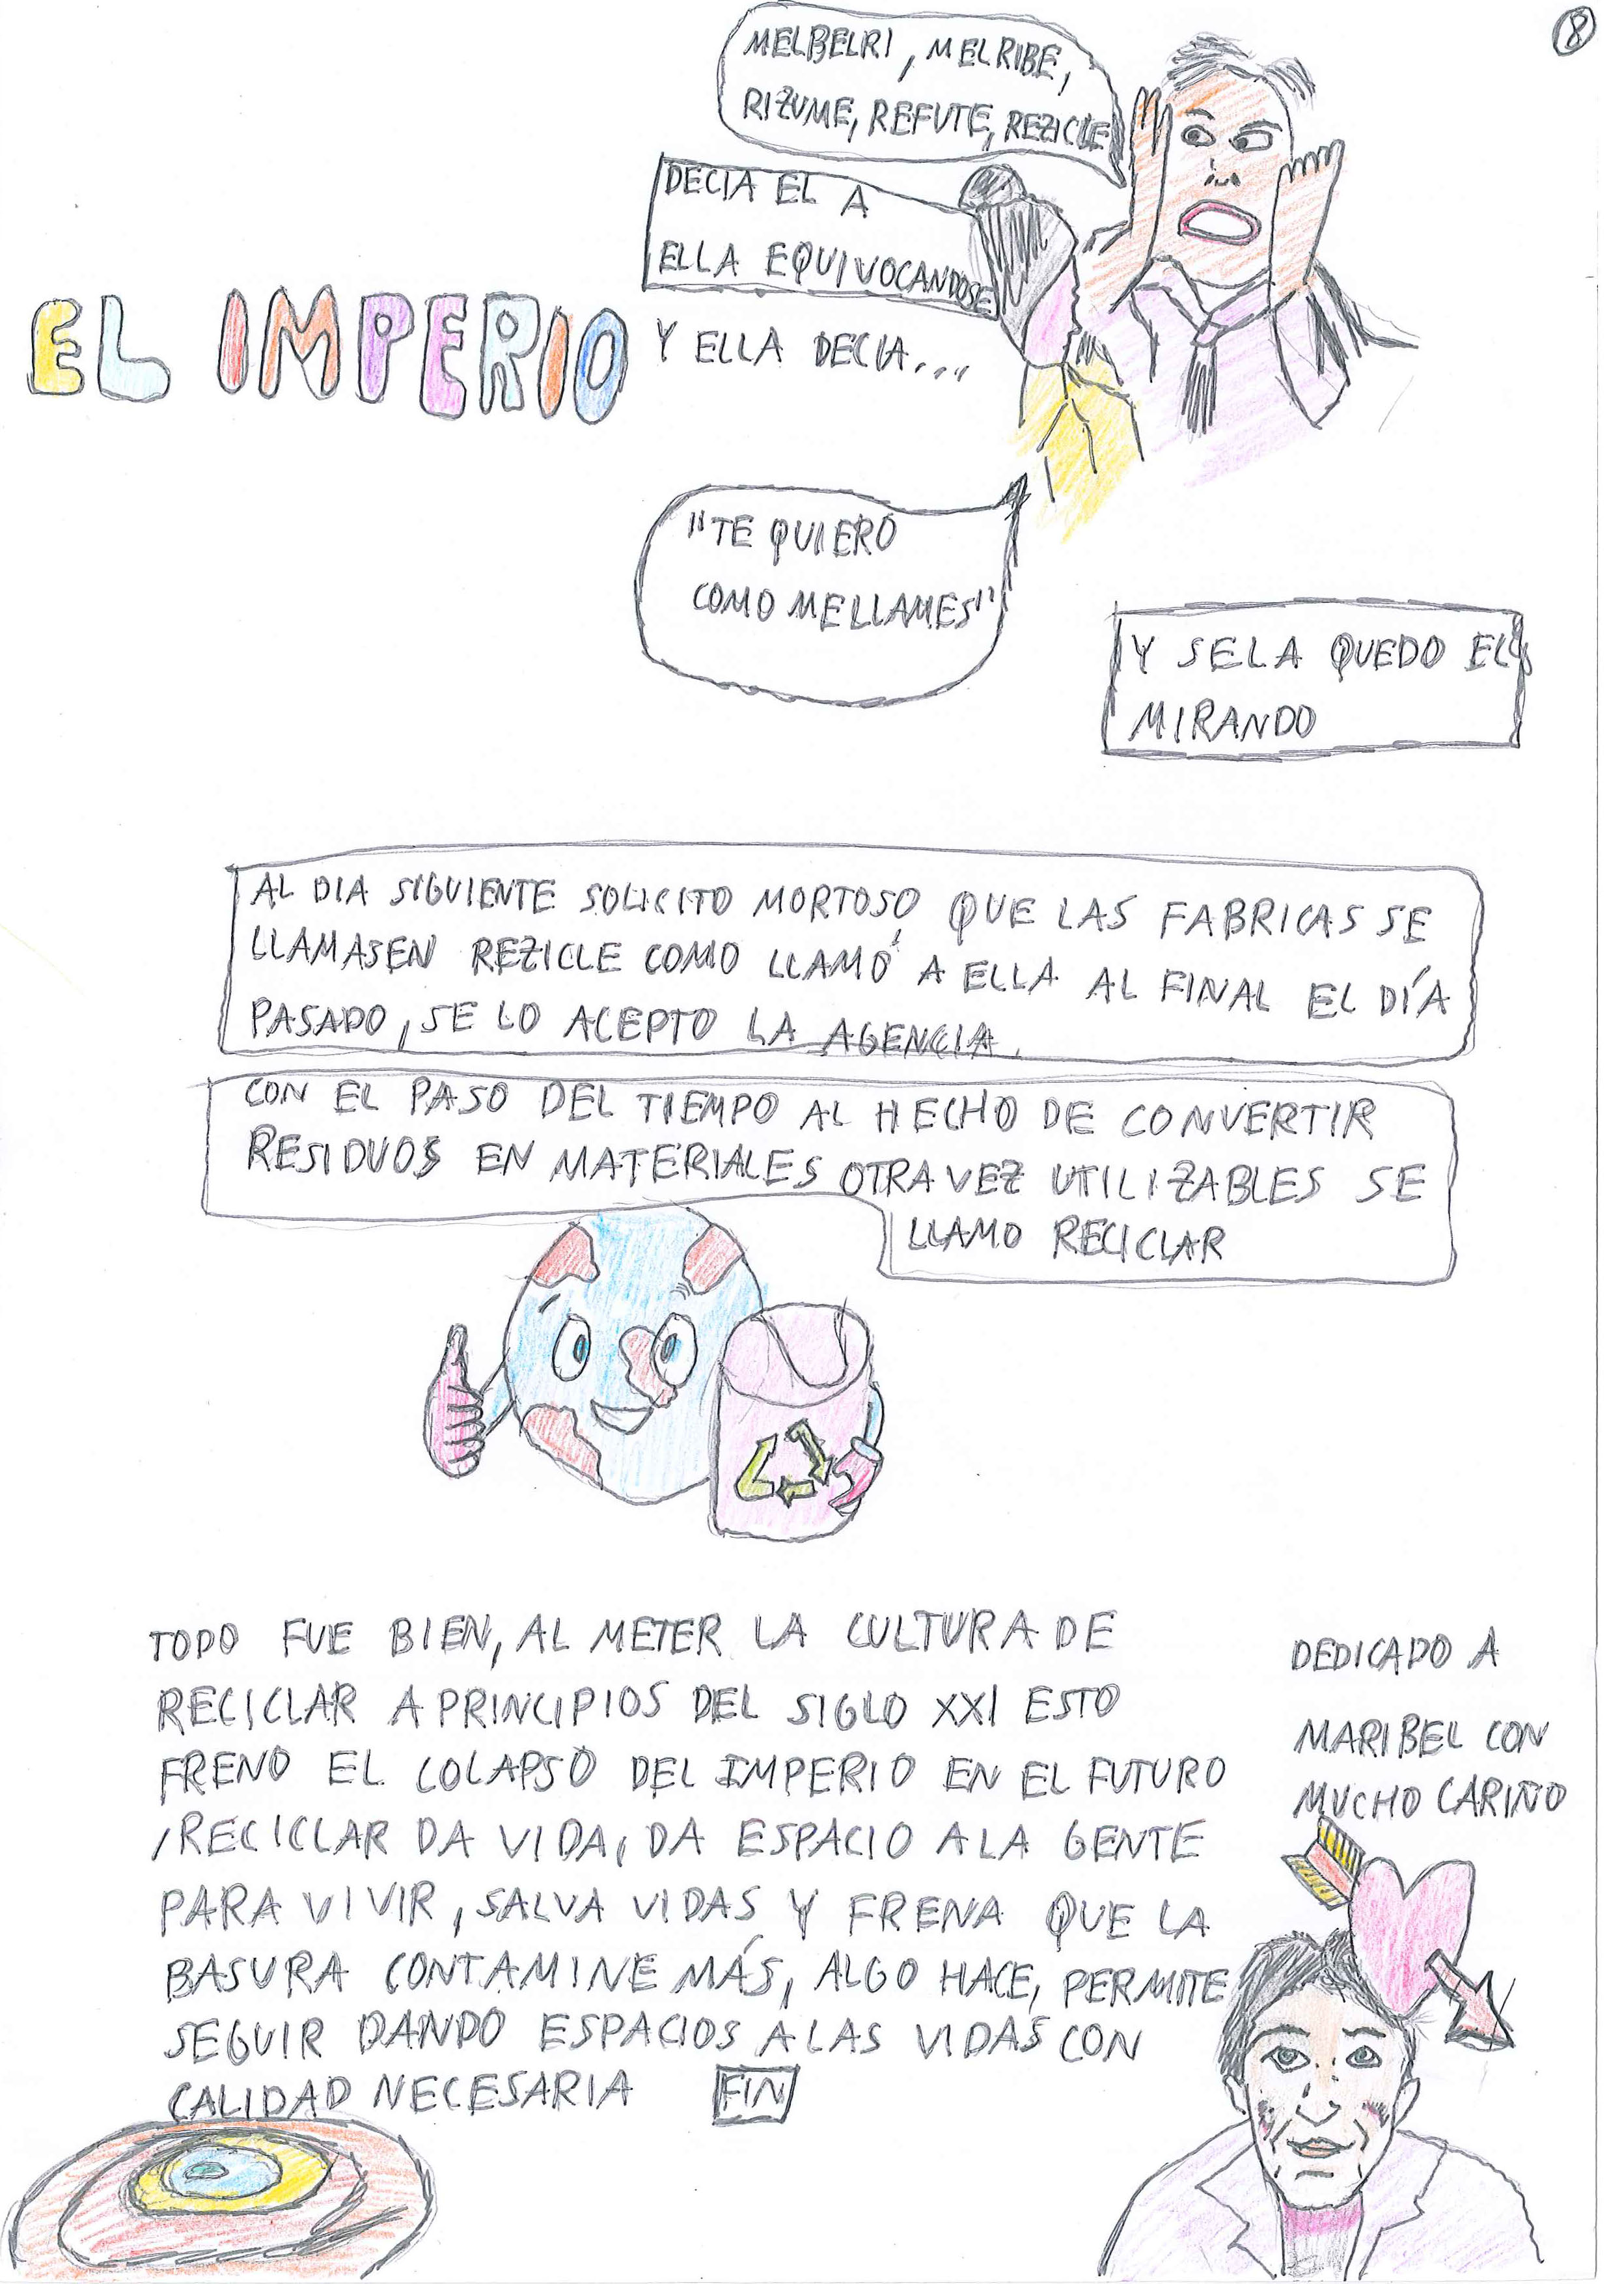 8
MELBELRI, MELRIBE,
RIZUME, REFUTE, REZICLE
DECIA EL A
ELLA EQUIVOCANDOSE
EL IMPERIO
Y ELLA DECIA...
"TE QUIERO
COMO ME LLAMES"
Y SE LA QUEDO EL
MIRANDO
AL DIA SIGUIENTE SOLICITO MORTOSO QUE LAS FABRICAS SE
LLAMASEN REZICLE COMO LLAMÓ A ELLA AL FINAL EL DÍA
PASADO, SE LO ACEPTO LA AGENCIA.
CON EL PASO DEL TIEMPO AL HECHO DE CONVERTIR
RESIDUOS EN MATERIALES OTRA VEZ UTILIZABLES SE
LLAMO RECICLAR
TODO FUE BIEN, AL METER LA CULTURA DE
RECICLAR A PRINCIPIOS DEL SIGLO XXI ESTO
FRENO EL COLAPSO DEL IMPERIO EN EL FUTURO
, RECICLAR DA VIDA, DA ESPACIO A LA GENTE
PARA VIVIR, SALVA VIDAS Y FRENA QUE LA
BASURA CONTAMINE MÁS, ALGO HACE, PERMITE
SEGUIR DANDO ESPACIOS A LAS VIDAS CON
CALIDAD NECESARIA FIN
DEDICADO A
MARIBEL CON
MUCHO CARIÑO